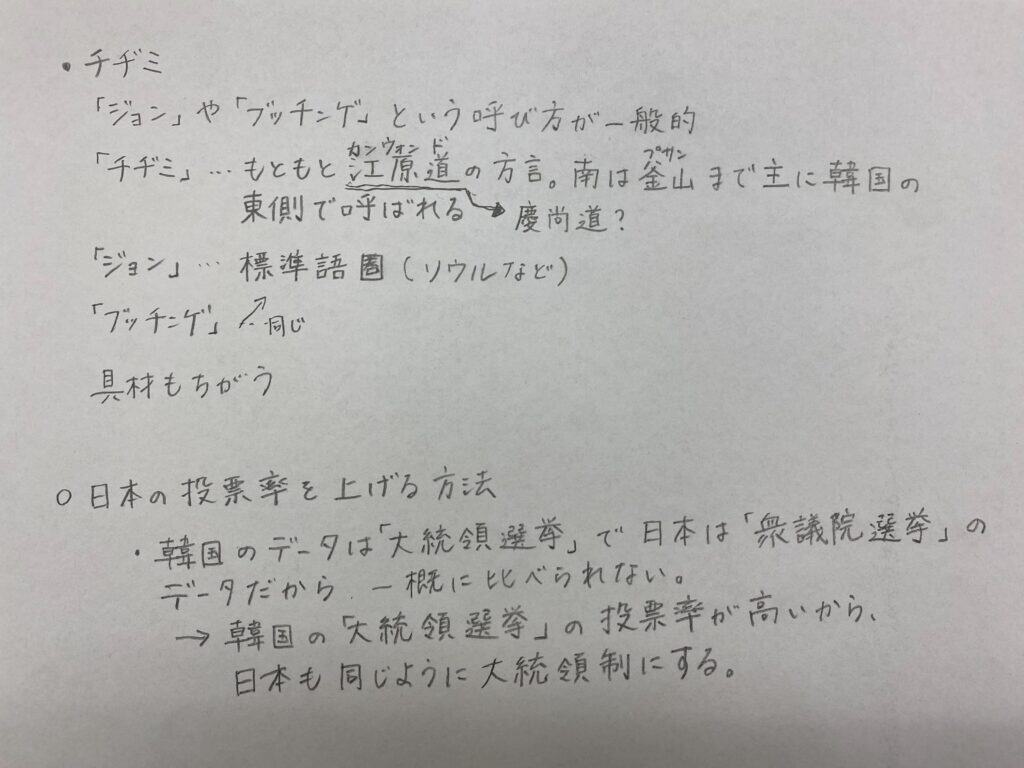 ・チヂミ
「ジョン」や「ブッチンゲ」という呼び方が一般的
カンウォンド
プサン
「チヂミ」… もともと江原道の方言。南は釜山まで主に韓国の
東側で呼ばれる
慶尚道?
「ジョン」… 標準語圏(ソウルなど)
「ブッチンゲ」 ↗ 同じ
具材もちがう
○ 日本の投票率を上げる方法
・韓国のデータは「大統領選挙」で日本は「衆議院選挙」の
データだから、一概に比べられない。
→ 韓国の「大統領選挙」の投票率が高いから、
日本も同じように大統領制にする。